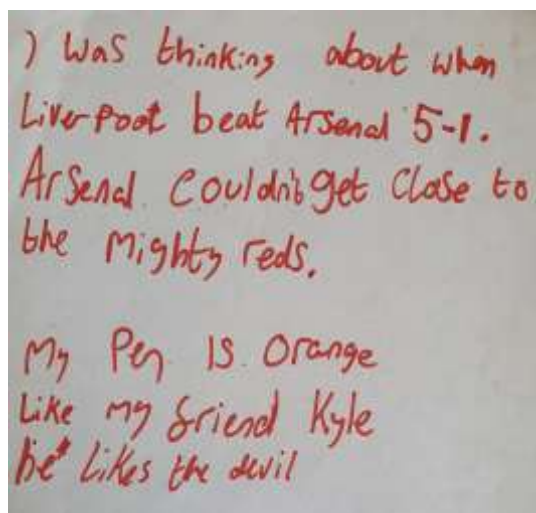 I was thinking about when
Liverpool beat Arsenal 5-1.
Arsenal couldn't get close to
the mighty reds.
My Pen is orange
Like my friend Kyle
he likes the devil